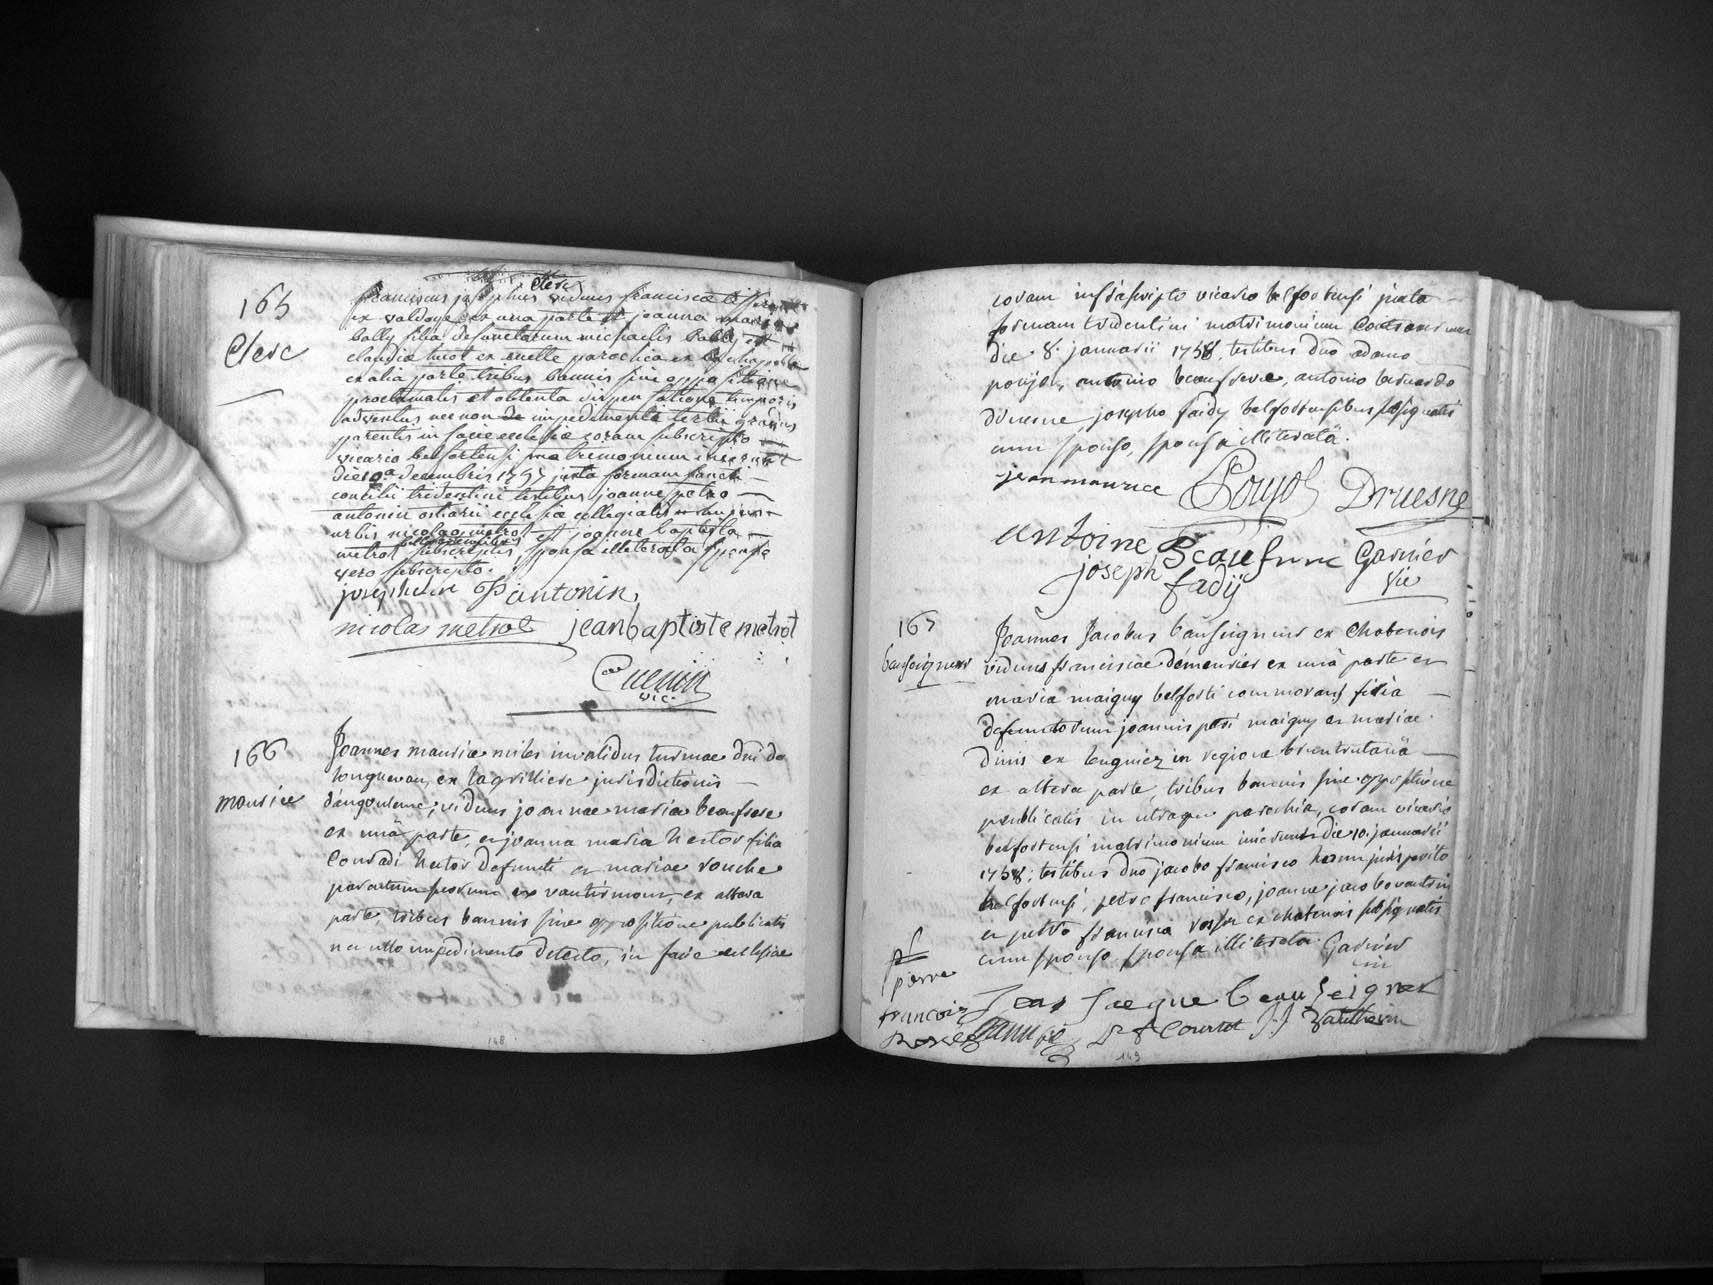 165
Clerc
Clerc
Franciscus josephus viduus franciscæ
ex valdoye ex una parte et joanna maria
bolly filia defunctorum michaelis bolly et
claudiæ tuot ex ruelle parochia ex
ex alia parte tribus bannis sine oppositione
proclamatis et obtenta dispensatione temporis
adventus nec non de impedimento tertii gradus
parentis in facie ecclesiæ coram subscripto
vicario belfortensi matremonium inierunt
die 19a decembris 1757 juxta formam sancti
concilii tridentini testibus joanne petro
antonin ostiarii ecclesiæ collegiatis hujus
urbis nicolao metrot et joanne baptista
metrot belfortensibus subscriptis, sponsa illiterata sponso
vero subscripto.
joseph clerc P antonin
nicolas metrot jeanbaptiste metrot
Cuenin
vic.
166
maurice
Joannes maurice miles invalidus turmae dni de
longuevau, ex lagrilliere jurisdictionis
d'angouleme, viduus joannae mariae beaufrere
ex unâ parte, et joanna maria hector filia
Conradi hector defuncti et mariae rouche
parentum suorum ex vautiermont, ex altera
parte tribus bannis sine oppositione publicatis
nec ullo impedimento detecto, in facie ecclesiae
148
coram infrascripto vicario belfortensi juxta
formam tridentini matrimonium Contraxerunt
die 8. januarii 1758, testibus dno adamo
poujol, antonio beaufrere, antonio bernardo
druesne, josepho faidy belfortensibus subsignatis
cum sponso, sponsa illiteratâ.
jean maurice Poujol Druesne
antoine Beaufrere Garnier
joseph fadÿ vic
167
bauseigneur
Joannes Jacobus bauseigneur ex Chatenois
viduus franciscae démeusier ex unâ parte et
maria maigny belforti commorans filia
defunctorum joannis petri maigny et mariae
dinis ex lengniez in regione bruntrutanâ
ex altera parte, tribus bannis sine oppositione
publicatis in utraque parochia, coram vicario
belfortensi matrimonium inierunt die 10. januarii
1758; testibus dno jacobo francisco juris perito
belfortensi, petro francisco, joanne jacobo
et petro francisco ex chatenois subsignatis
cum sponso sponsa illiterata. Garnier
vic
pierre
francois
Jean Jacque beauseigner
courtot J.J.
149